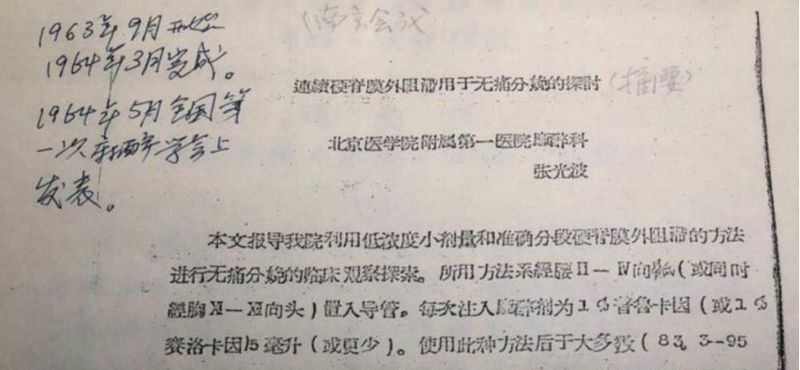 1963年9月开始
1964年3月完成。
1964年5月全国第
一次麻醉学会上
发表。
(南京会议
連續硬脊膜外阻滞用于无痛分娩的探討(摘要)
北京医学院附属第一医院麻醉科
张光波
本文报导我院利用低浓度小剂量和准确分段硬脊膜外阻滞的方法
进行无痛分娩的临床观察探索。所用方法系經腰II—IV向骶(或同时
經胸XI—XII向头)置入导管。每次注入麻醉剂为1%普鲁卡因(或1%
赛洛卡因)5毫升(或更少)。使用此种方法后于大多数(83.3—95